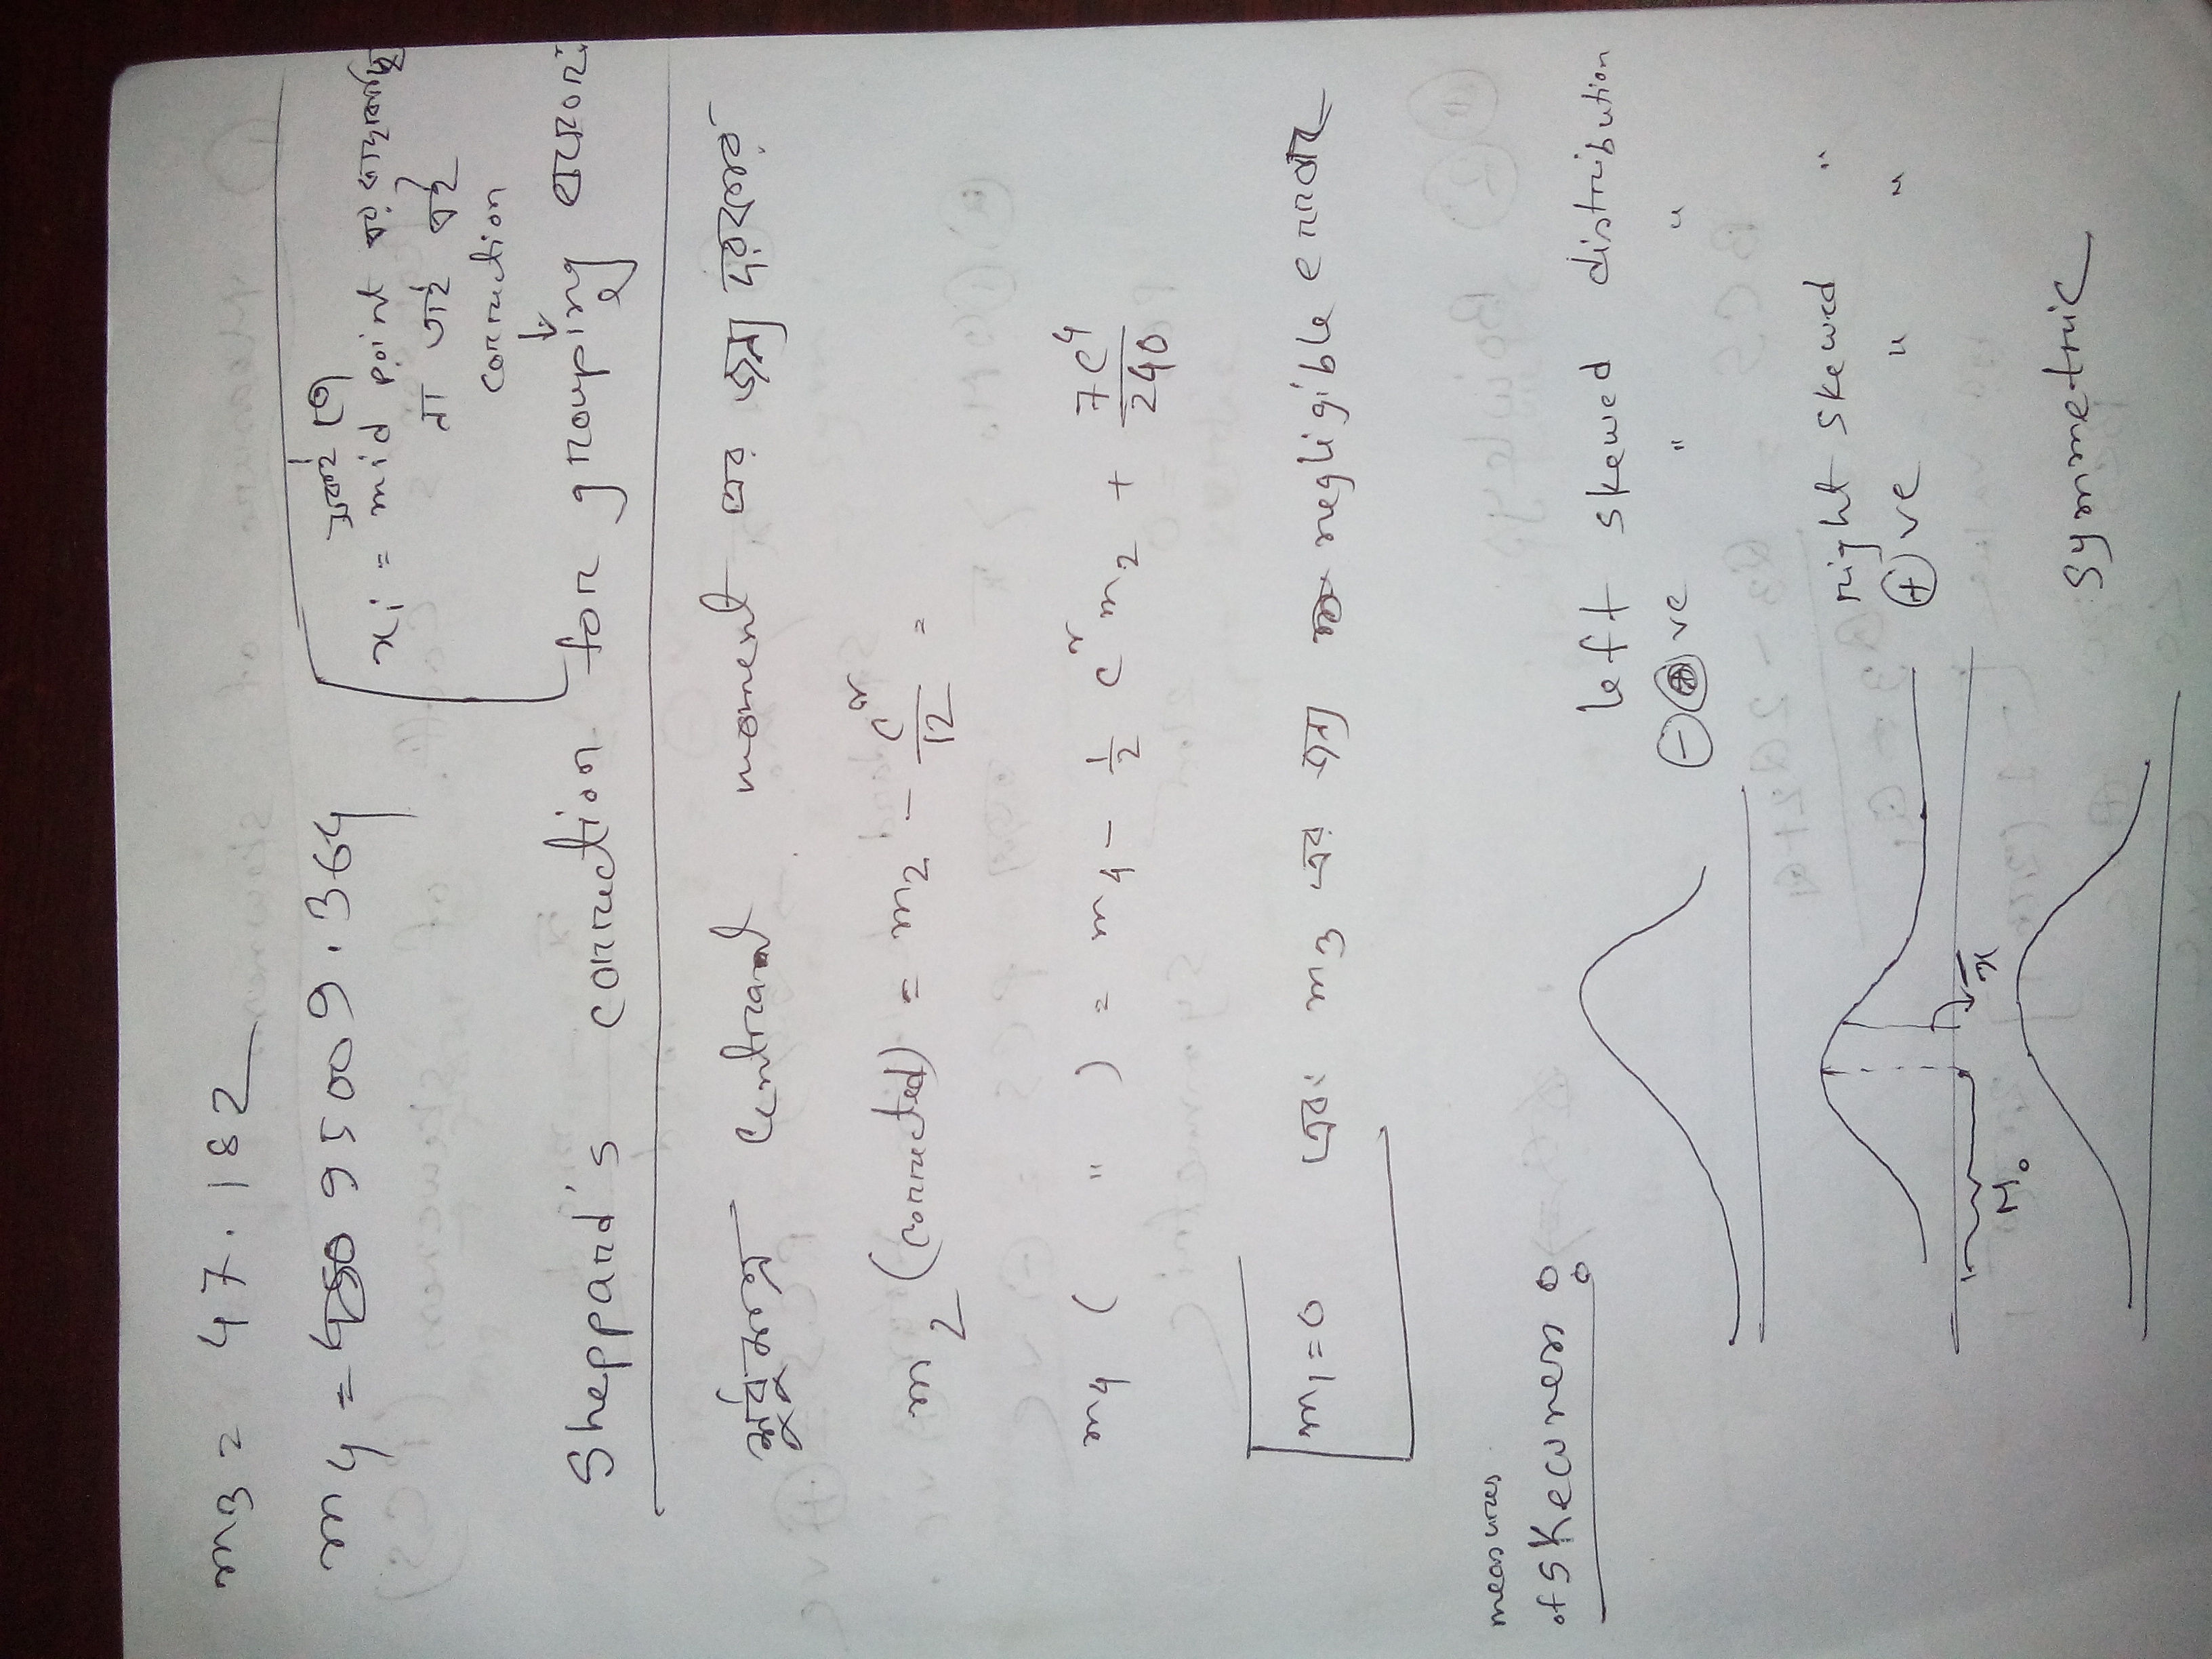 m3 = 47.182
m4 = 95009.364
xi = mid point
না তাই
correction
Sheppard's correction for grouping error:
central moment এর জন্য
m2 (corrected) = m2 - c²/12 =
m4 ( " ) = m4 - 1/2 c² m2 + 7c⁴/240
m1 = 0 এবং m3 এর জন্য negligible error
measures
of skewness :
left skewed distribution
⊖ ve " "
right skewed "
⊕ ve " "
M₀
x̄
symmetric